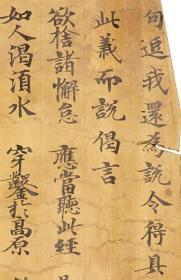 句逗我還為說令得具
此義而說偈言
欲捨諸懈怠　應當聽此經
如人渴湏水　穿鑿扵髙原